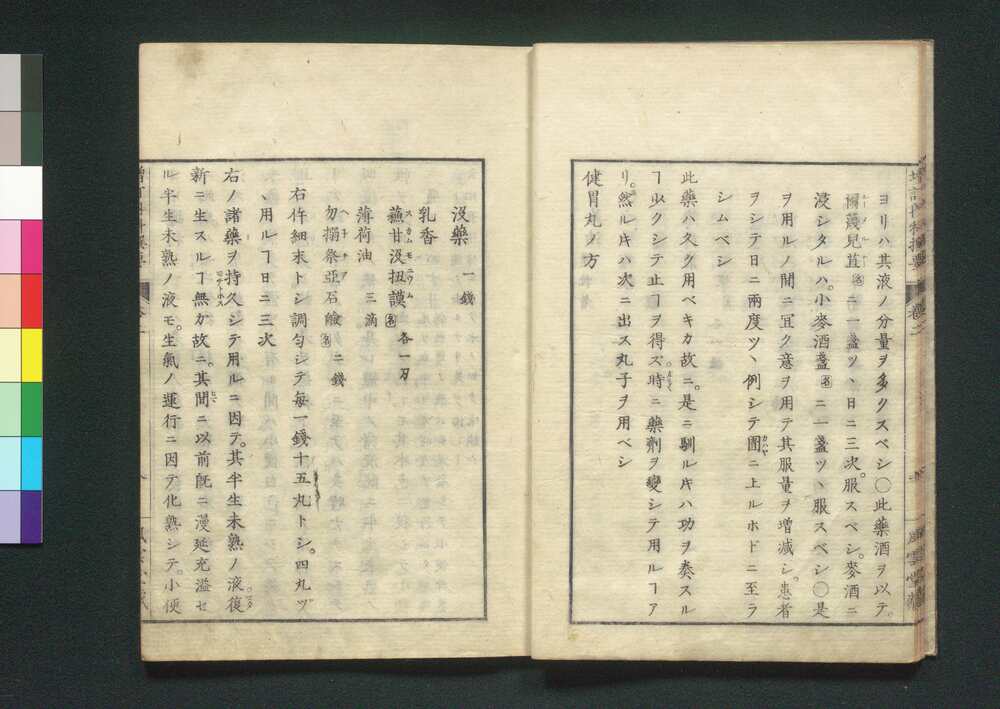 ヨリハ其液ノ分量ヲ多クスベシ〇此藥酒ヲ以テ。
ニ一盞ツヽ、日ニ三次。服スベシ。麥酒ニ
浸シタルハ。小麥酒盞名ニ一盞ツヽ服スベシ〇是
ヲ用ルノ間ニ冝ク意ヲ用テ其服量ヲ增减シ。患者
ヲシテ日ニ兩度ツヽ例シテ圊ニ上ルホドニ至ラ
シムベシ
此藥ハ久ク用ベキカ故ニ。是ニ馴ルヽ𪜈ハ功ヲ奏スル
ヿ少クシテ止ヿヲ得ズ。時ニ藥劑ヲ變シテ用ルヿア
リ。然ル𪜈ハ次ニ出ス丸子ヲ用ベシ
健胃丸ノ方
沒藥 一錢
乳香
蘓甘沒扭謨名 各一匁
薄荷油 三滴
勿搦祭亞石鹼名 二錢
右件細末トシ調勻シテ每一錢十五丸トシ。四丸ヅ
ヽ用ルヿ日ニ三次
右ノ諸藥ヲ持久シテ用ルニ因テ。其半生未熟ノ液復
新ニ生スルヿ無カ故ニ。其間ニ以前旣ニ漫延充溢セ
ル半生未熟ノ液モ。生氣ノ運行ニ因テ化熟シテ。小便